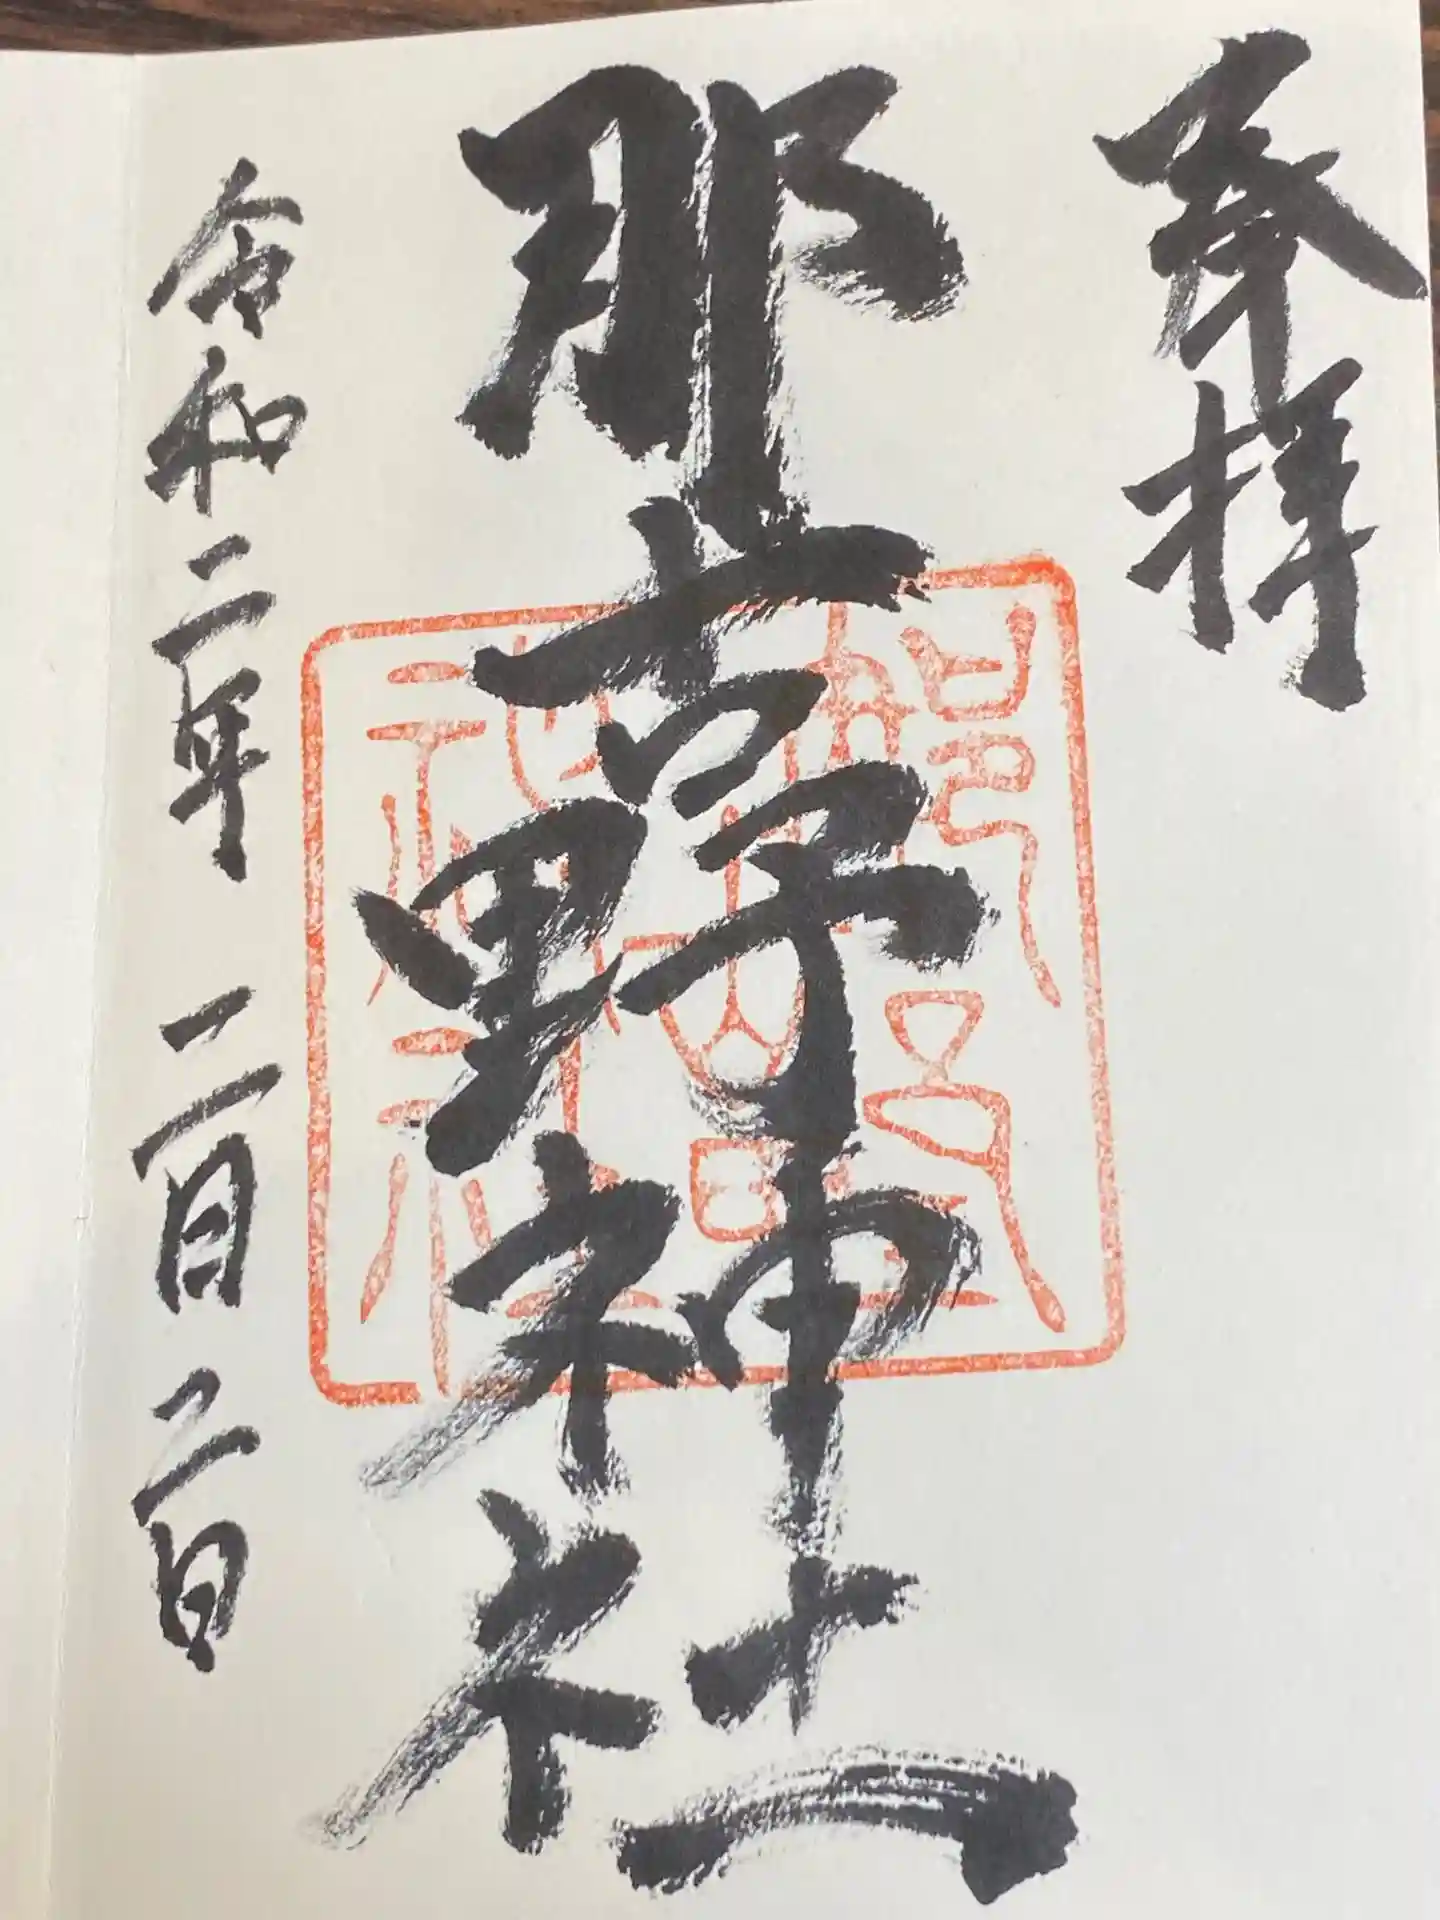 奉拝
那古野神社
令和二年二月二日